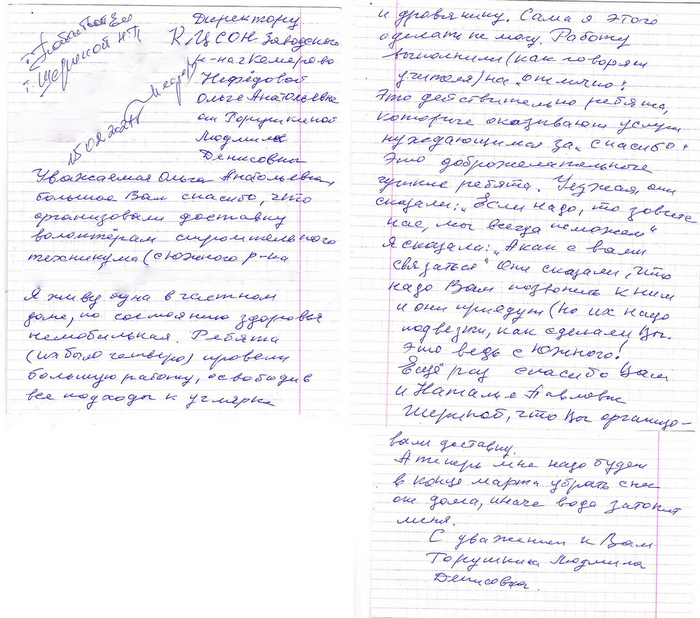 Директору
КЦСОН Заводского
р-на г Кемерово
Нефёдовой
Ольге Анатольевне
от Торушкиной
Людмилы
Денисовны
Шериной НП
15.02.2021г
Уважаемая Ольга Анатольевна,
большое Вам спасибо, что
организовали доставку
волонтёрам строительного
техникума (с Южного р-на
Я живу одна в частном
доме, по состоянию здоровья
немобильная. Ребята
(их было четверо) провели
большую работу, освободив
все подходы к углярке
и дровянику. Сама я этого
сделать не могу. Работу
выполнили (как говорят
учителя) на „отлично!
Это действительно ребята,
которые оказывают услуги
нуждающимся за „спасибо!
Это доброжелательные
чуткие ребята. Уезжая, они
сказали: „Если надо, то зовите
нас, мы всегда поможем"
Я сказала: „А как с вами
связаться" Они сказали, что
надо Вам позвонить к ним
и они приедут (но их надо
подвезти, как сделали Вы.
Это ведь с Южного!
Ещё раз спасибо Вам
и Наталье Павловне
Шериной, что Вы организо-
вали доставку.
А теперь мне надо будет
в конце марта убрать снег
от дома, иначе вода затопит
меня.
С уважением к Вам
Торушкина Людмила
Денисовна.